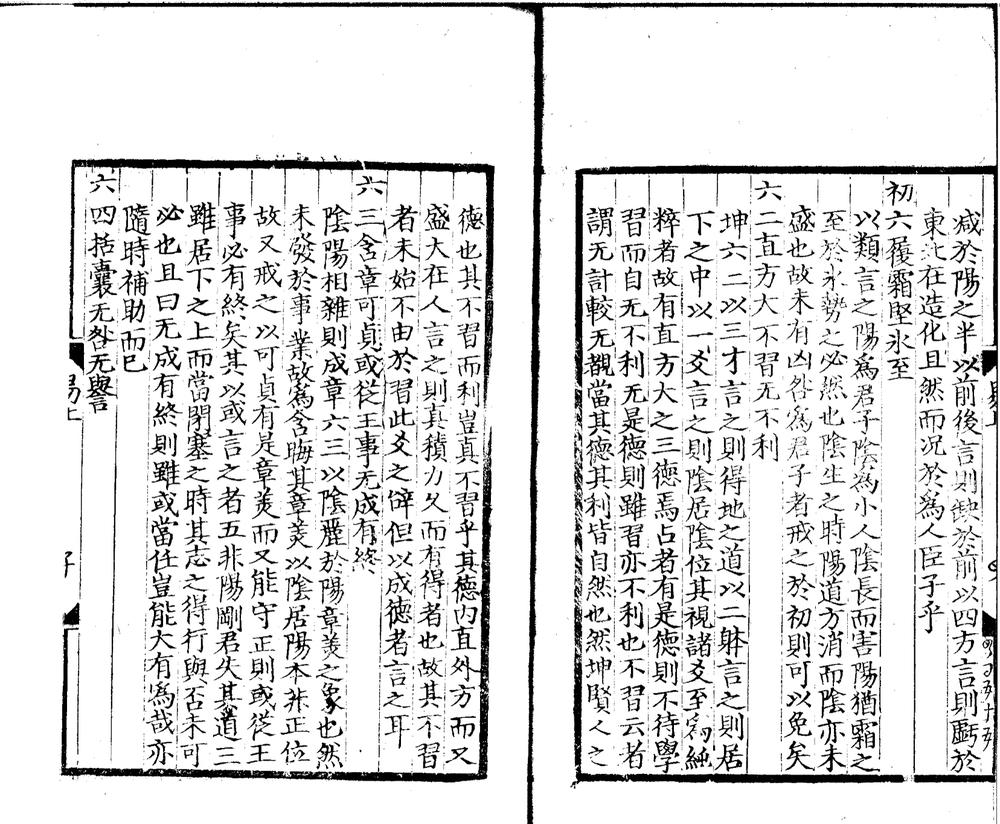 減於陽之半以前後言則缺於前以四方言則虧於
東北在造化且然而况於爲人臣子乎
初六履霜堅氷至
以類言之陽爲君子陰爲小人陰長而害陽猶霜之
至於氷勢之必然也陰生之時陽道方消而陰亦未
盛也故未有凶咎爲君子者戒之於初則可以免矣
六二直方大不習无不利
坤六二以三才言之則得地之道以二躰言之則居
下之中以一爻言之則陰居陰位其視諸爻至純
粹者故有直方大之三德焉占者有是德則不待學
習而自无不利无是德則雖習亦不利也不習云者
謂无計較无覩當其德其利皆自然也然坤賢人之
德也其不習而利豈真不習乎其德内直外方而又
盛大在人言之則真積力久而有得者也故其不習
者未始不由於習此爻之辭但以成德者言之耳
六三含章可貞或從王事无成有終
陰陽相雜則成章六三以陰麗於陽章美之象也然
未發於事業故爲含晦其章美以陰居陽本非正位
故又戒之以可貞有是章美而又能守正則或從王
事必有終矣其以或言之者五非陽剛君失其道三
雖居下之上而當閉塞之時其志之得行與否未可
必也且曰无成有終則雖或當任豈能大有爲哉亦
隨時補助而已
六四括囊无咎无譽
易上